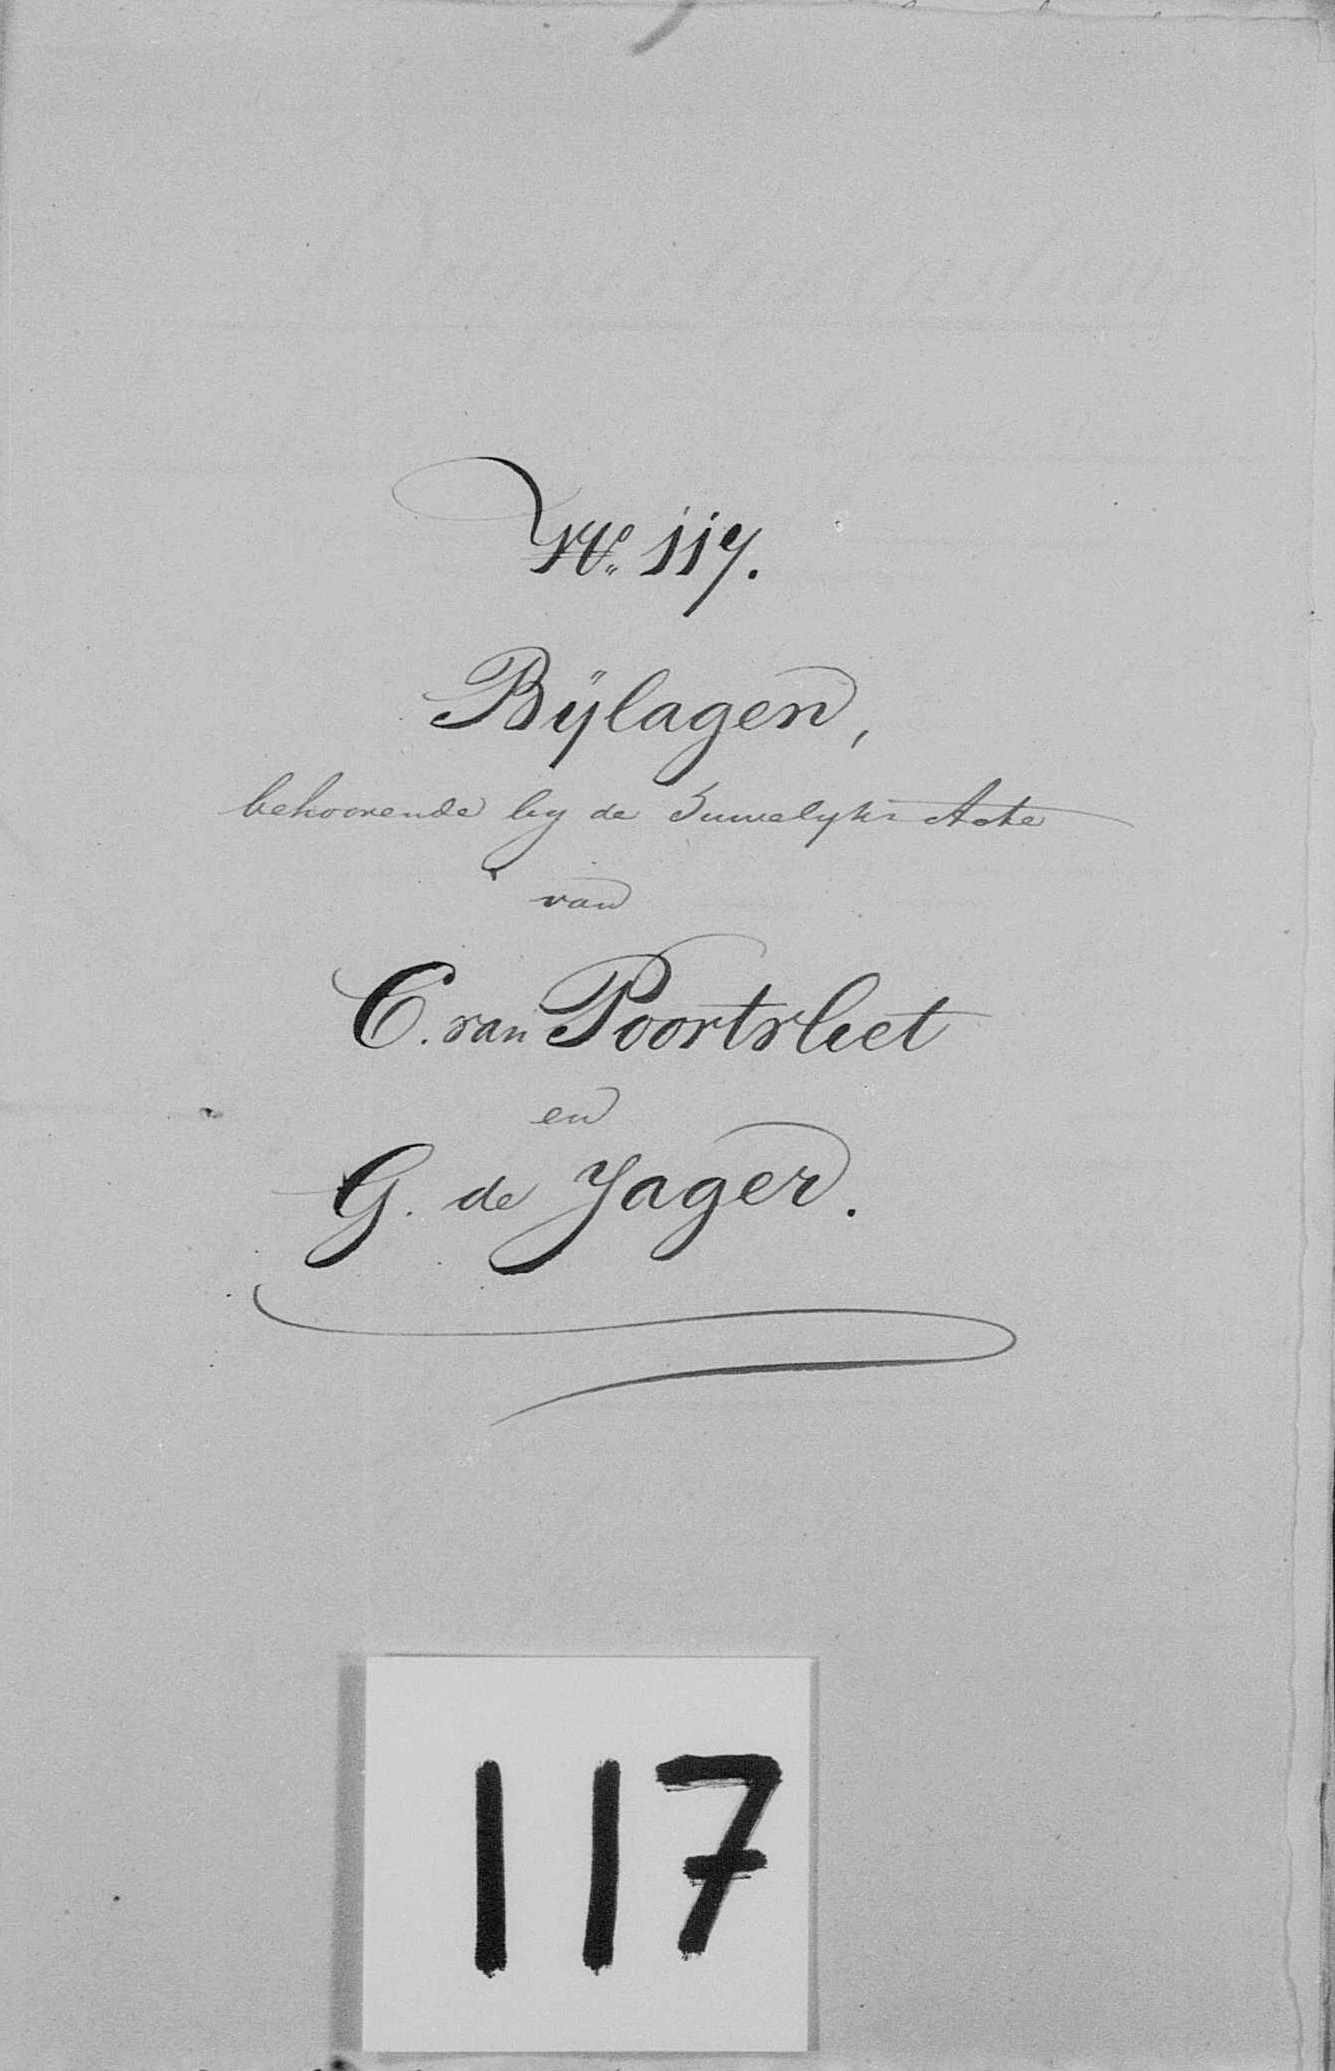 No. 117.
Bÿlagen,
behoorende by de Huwelyks Acte
van
C. van Poortvliet
en
G. de Jager.
117